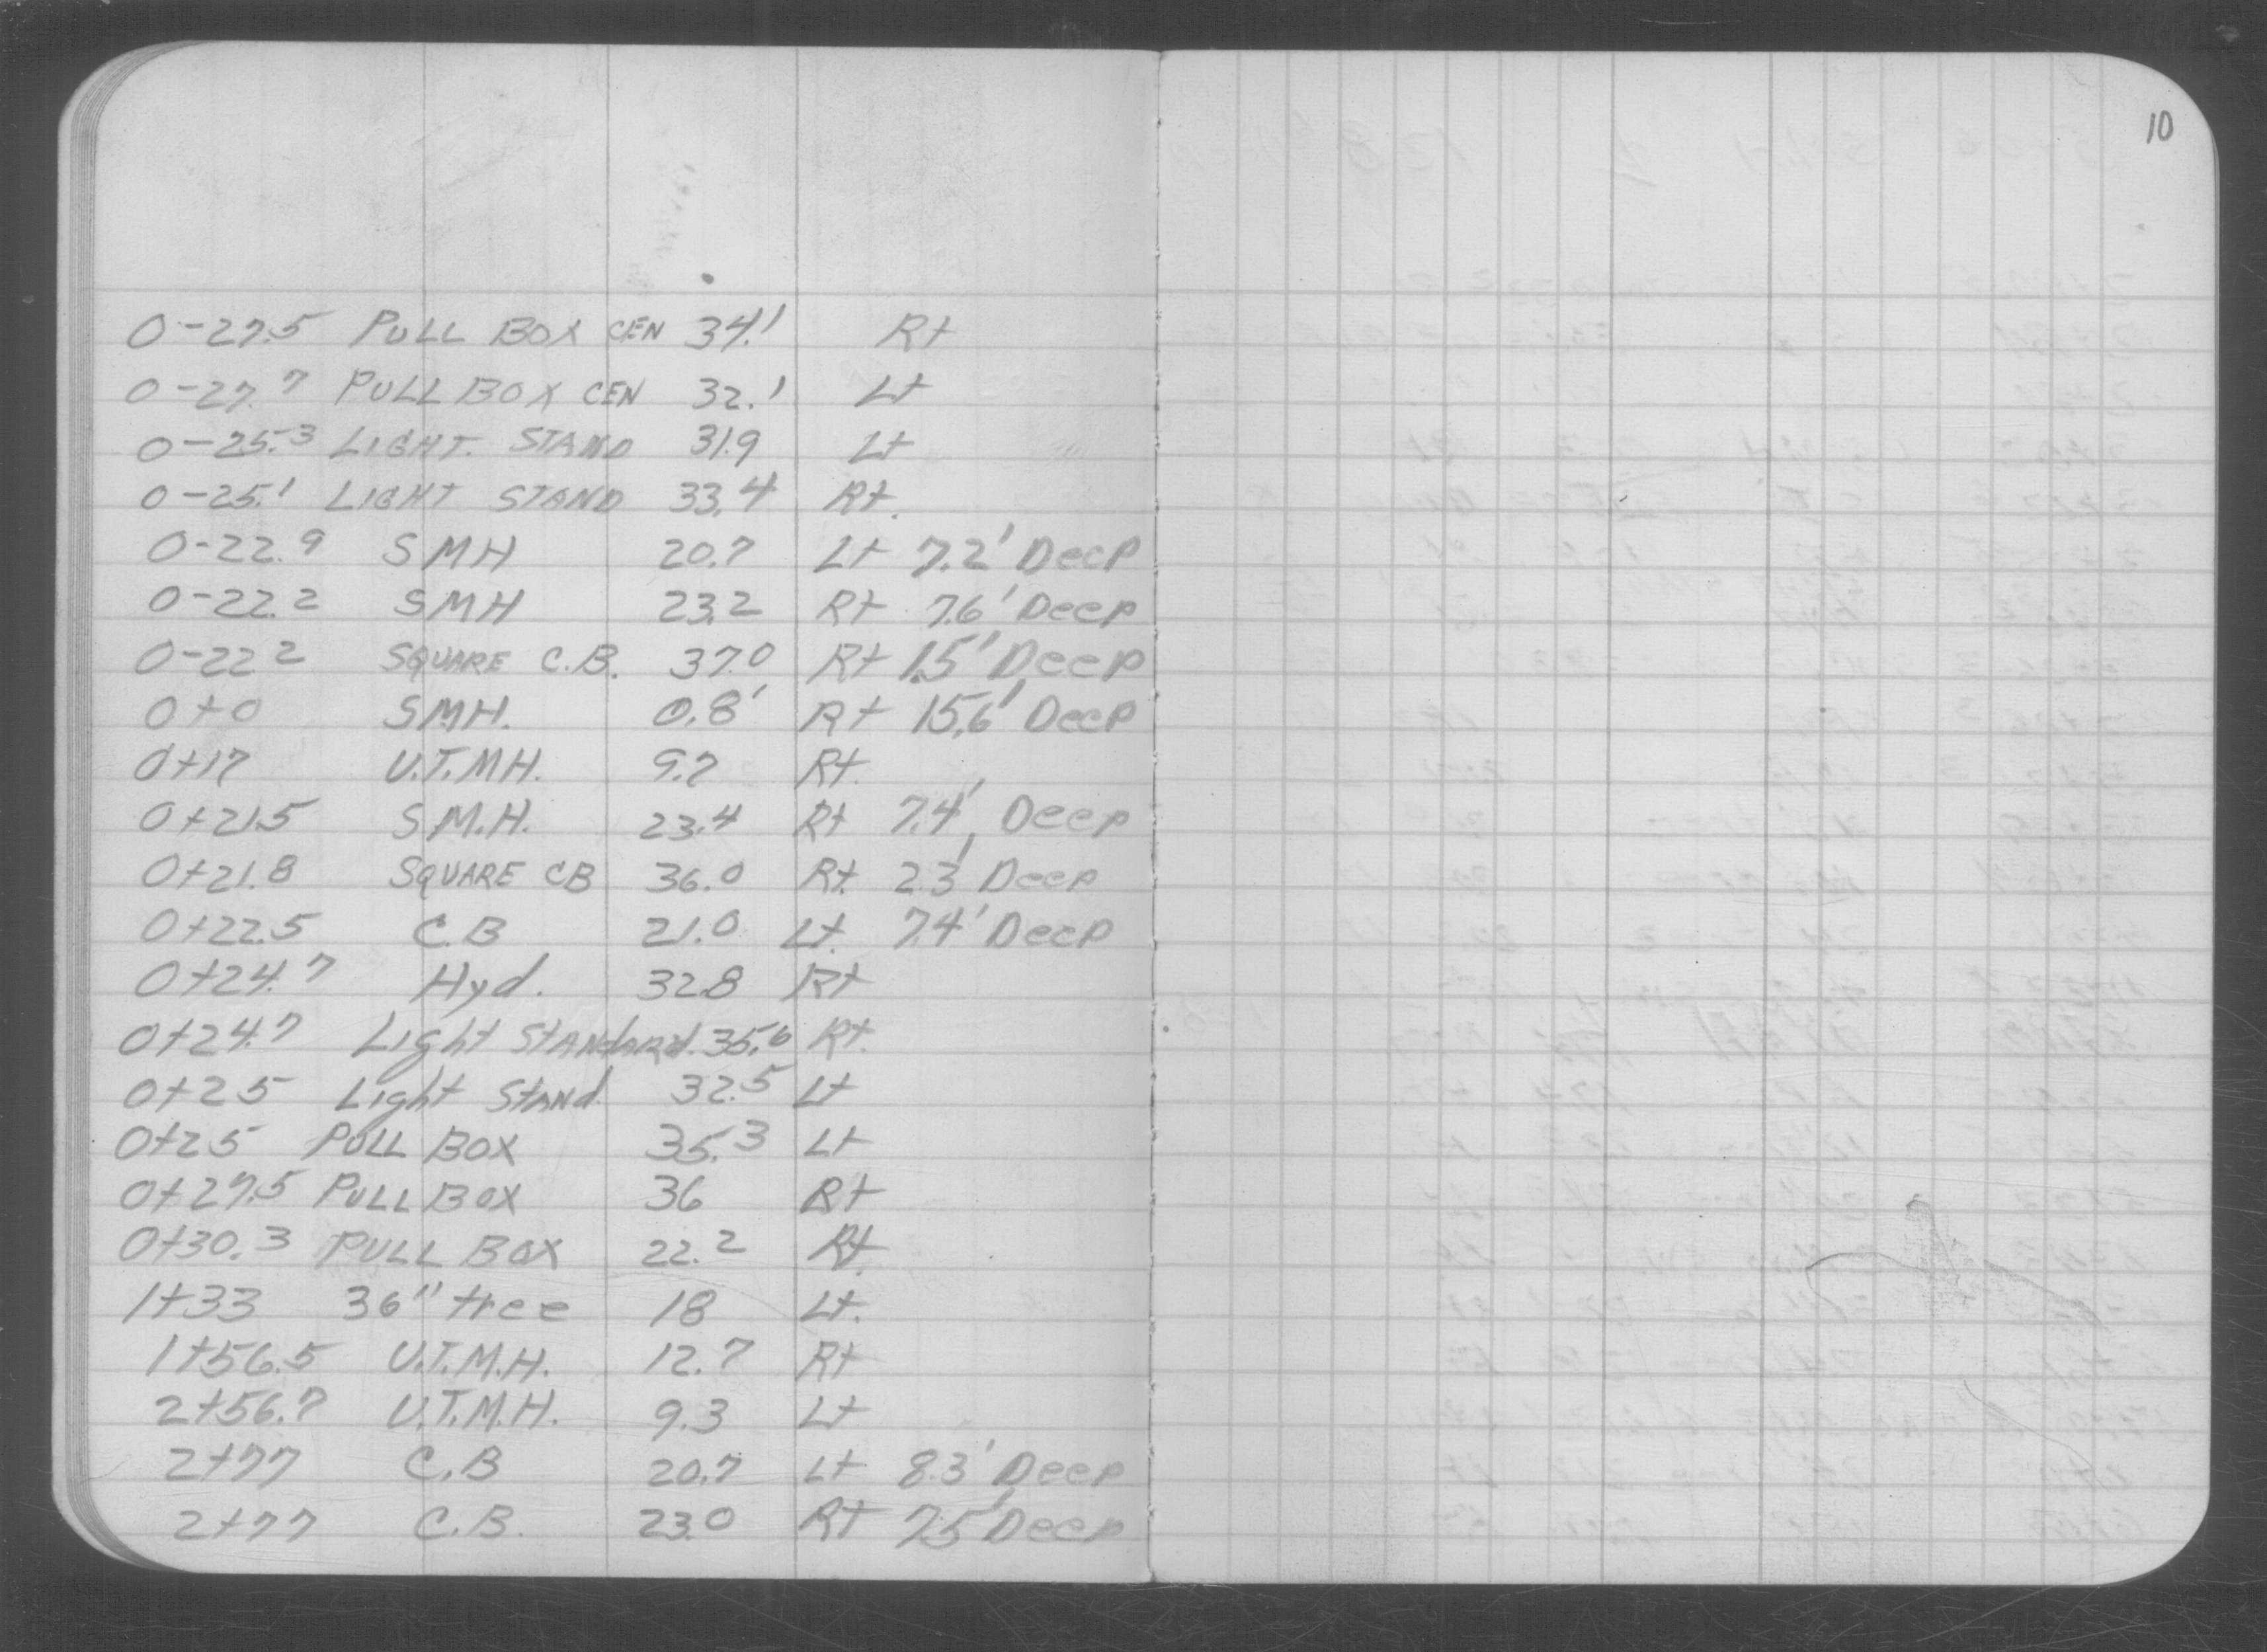 10
0-27.5 PULL BOX CEN 34.1 Rt
0-27.7 PULL BOX CEN 32.1 Lt
0-25.3 LIGHT. STAND 31.9 Lt
0-25.1 LIGHT STAND 33.4 Rt.
0-22.9 SMH 20.7 Lt 7.2' Deep
0-22.2 SMH 23.2 Rt 7.6' Deep
0-22.2 SQUARE C.B. 37.0 Rt 1.5' Deep
0+0 SMH. 0.8' Rt 15.6' Deep
0+17 U.T.MH. 9.7 Rt
0+21.5 SM.H. 23.4 Rt 7.4' Deep
0+21.8 SQUARE CB 36.0 Rt. 2.3' Deep
0+22.5 C.B 21.0 Lt. 7.4' Deep
0+24.7 Hyd. 32.8 Rt
0+24.7 Light Standard. 35.6 Rt.
0+25 Light Stand. 32.5 Lt
0+25 PULL BOX 35.3 Lt
0+27.5 PULL BOX 36 Rt
0+30.3 PULL BOX 22.2 Rt.
1+33 36" tree 18 Lt.
1+56.5 U.T.M.H. 12.7 Rt
2+56.7 U.T.M.H. 9.3 Lt
2+77 C.B 20.7 Lt 8.3' Deep
2+77 C.B. 23.0 Rt 7.5' Deep